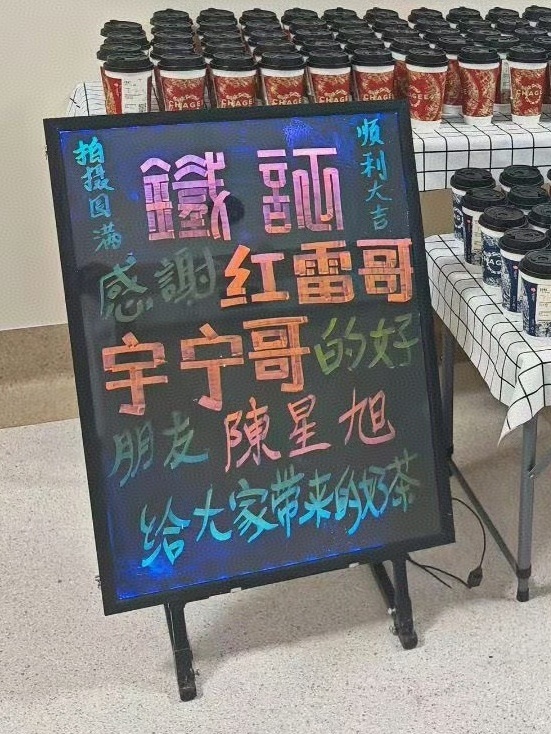 拍摄圆满
順利大吉
鐵証
感謝红雷哥
宇宁哥的好
朋友陳星旭
给大家带来的好茶
CHAGEE